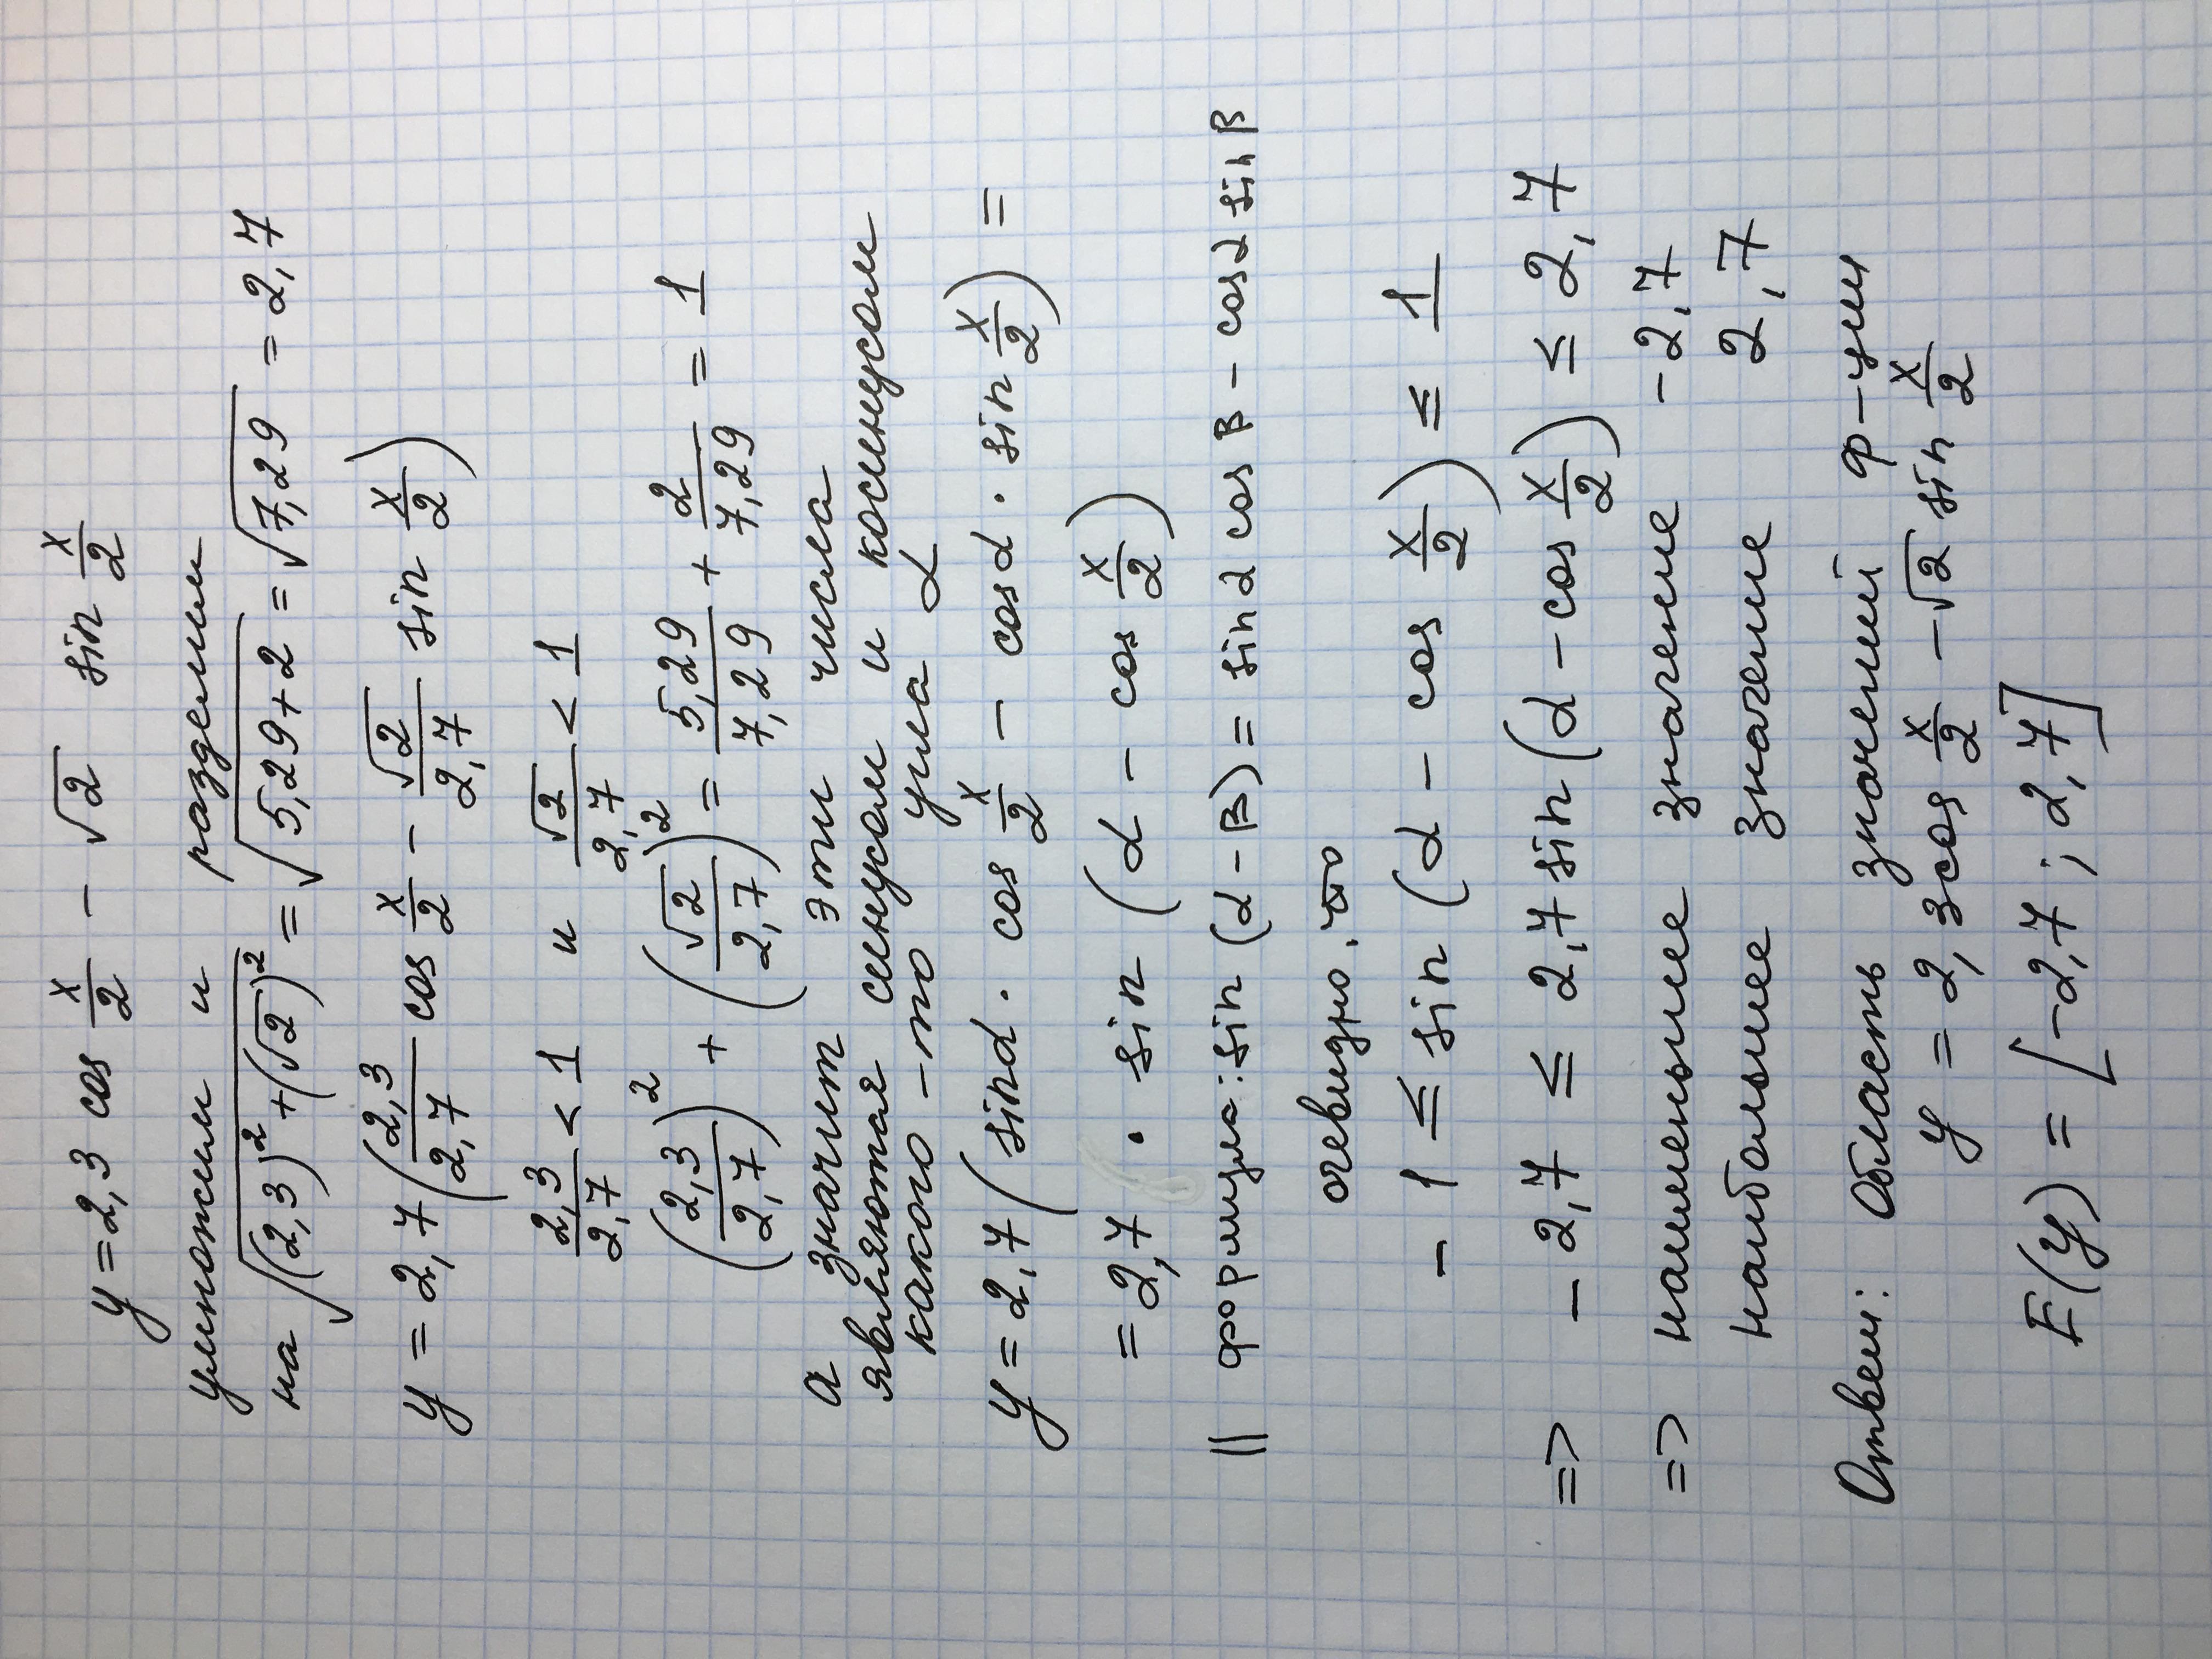 y = 2,3 cos x/2 − √2 sin x/2
умножим и разделим
на √((2,3)² + (√2)²) = √(5,29+2) = √7,29 = 2,7
y = 2,7 (2,3/2,7 cos x/2 − √2/2,7 sin x/2)
2,3/2,7 < 1 и √2/2,7 < 1
(2,3/2,7)² + (√2/2,7)² = 5,29/7,29 + 2/7,29 = 1
а значит эти числа
являются синусом и косинусом
какого-то угла α
y = 2,7 (sin α · cos x/2 − cos α · sin x/2) =
= 2,7 · sin (α − cos x/2)
|| формула: sin (α − β) = sin α cos β − cos α sin β
очевидно, что
− 1 ≤ sin (α − cos x/2) ≤ 1
=> − 2,7 ≤ 2,7 sin (α − cos x/2) ≤ 2,7
=> наименьшее значение −2,7
наибольшее значение 2,7
Ответ: Область значений ф-ции
y = 2,3 cos x/2 − √2 sin x/2
E(y) = [−2,7 ; 2,7]